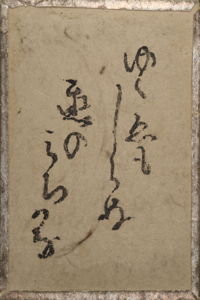 ゆくゑも
しらぬ
恋の
みちかな